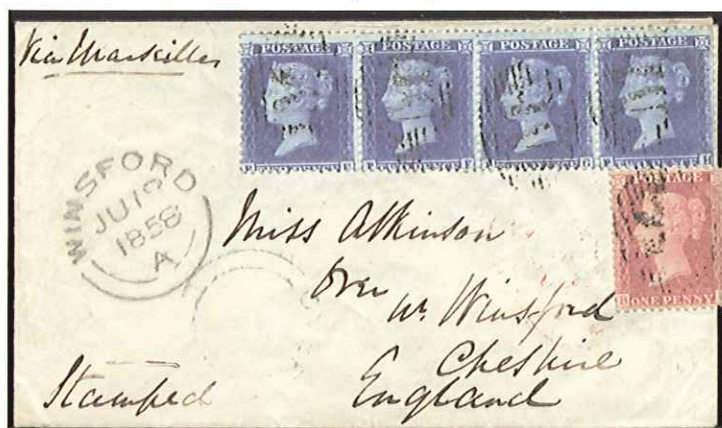 Via Marseilles
POSTAGE POSTAGE POSTAGE POSTAGE
WINSFORD
JU 19
1858
A
Miss Atkinson
Over
Nr. Winsford
Cheshire
England
Stamped
ONE PENNY